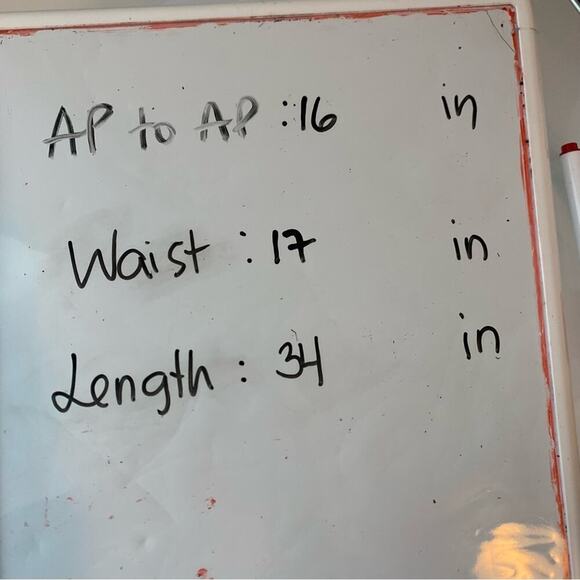 AP to AP : 16 in
Waist : 17 in.
Length : 34 in